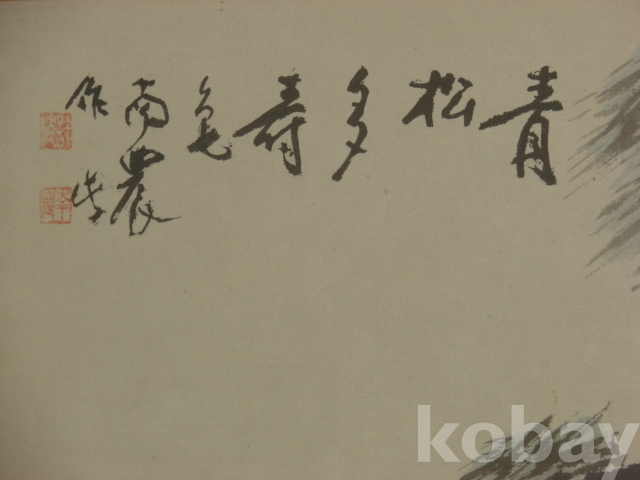 青松多壽色
南農
作
kobay